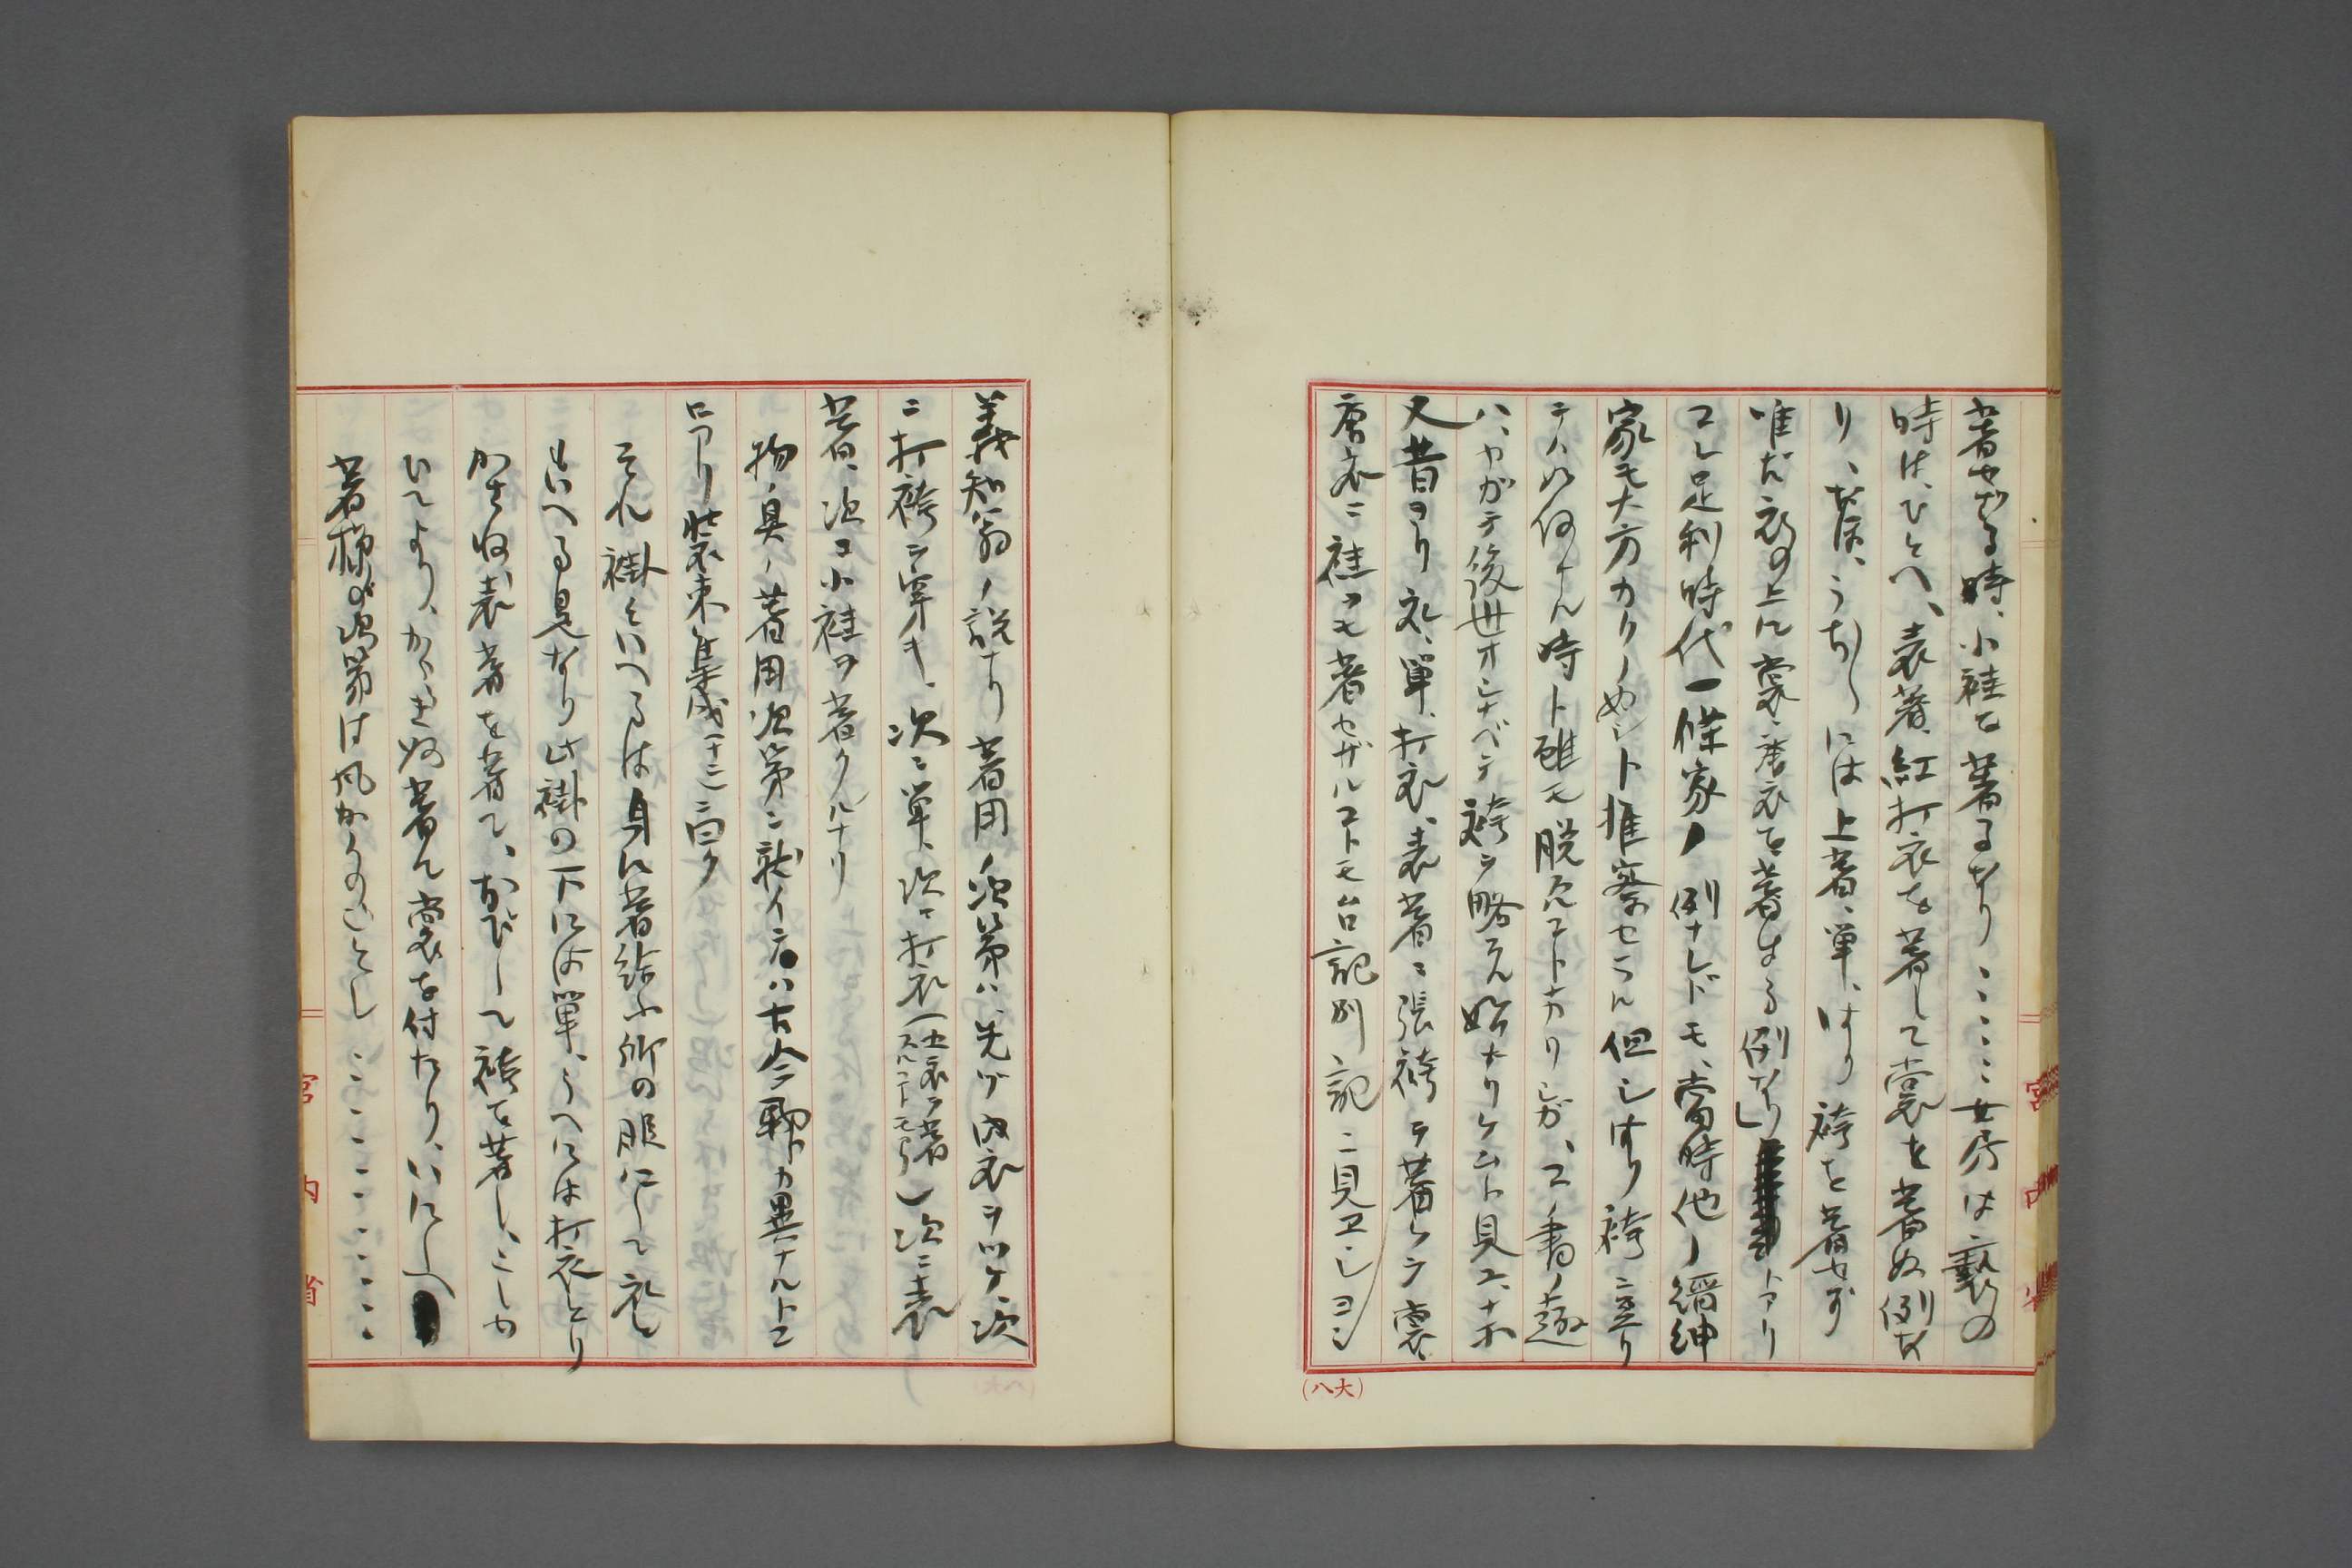 著せざる時、小袿を著るなり、、、、、女房は褻の
時は、ひとへ、表著、紅打衣を著して裳を著ぬ例な
り、なほ、うちには上著、単、はり袴を著せず
唯だ衣の上に裳、唐衣を著はる例なり」トアリ
コレ足利時代一條家ノ例ナレドモ、當時他ノ縉紳
家モ大方カクノ如シト推察セラル但しはり袴ニ至リ
テハ如何ナル時ト雖モ脱グコトナカリシガ、コノ書ノ趣
ハ、ヤガテ後世オシナベテ袴ヲ略スル始ナリケムト見ユ、ナホ
又昔ヨリ衣、單、打衣、表著ニ張袴ヲ著シテ裳、
唐衣ニ袿ヲモ著セザルコトモ台記別記ニ見エシヨシ
(八大)
義知翁ノ説ナリ著用ノ次第ハ、先ヅ内衣ヲツケ、次
ニ打袴ヲ穿キ、次ニ單、次ニ打衣(五衣ヲ著
スルコトモアリ)次ニ表
著、次ニ小袿ヲ著クルナリ
物ノ具ノ著用次第ニ就イテハ古今聊カ異ナルトコ
ロアリ装束集成(十三)ニ曰ク
それ褂といへるは身に著給ふ所の服にして衣と
もいへる是なり此褂の下には單、うへには打衣とり
かさね、表著を著て、おびして袴を著し、こしゆ
ひてより、からきぬ著て裳を付たり、いにしへ
著様の次第は凡かくのごとし、、、、、、、、
宮内省